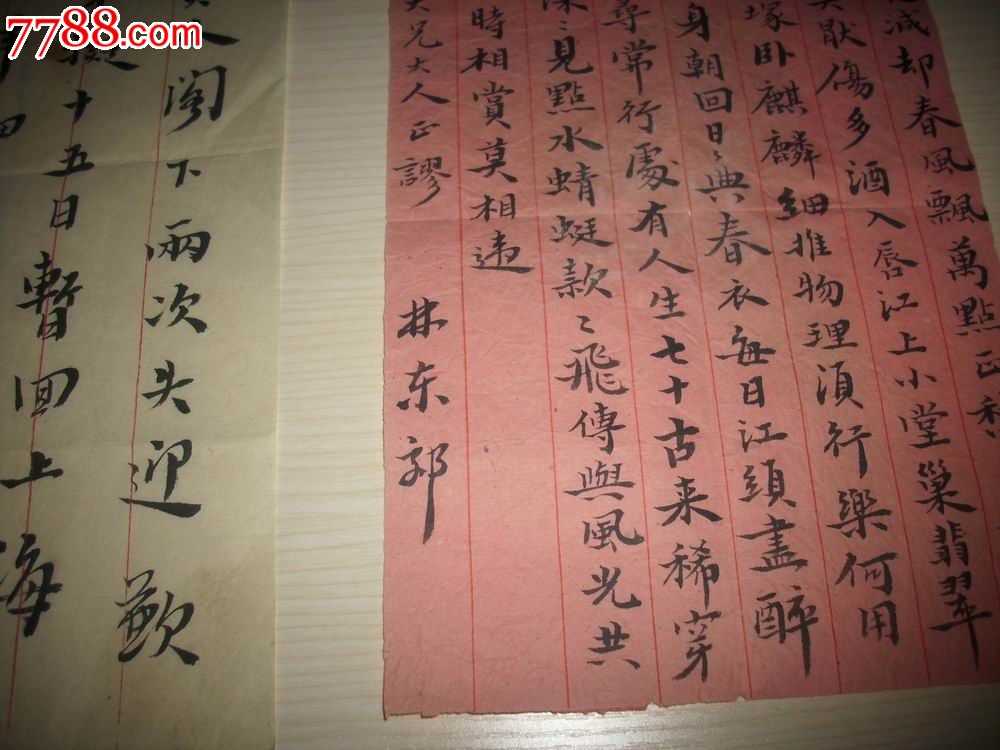 7788.com
減却春風飄萬點正愁
厭傷多酒入唇江上小堂巢翡翠
塚卧麒麟細推物理須行樂何用
身朝回日〻典春衣每日江頭盡醉
尋常行處有人生七十古来稀穿
〻見點水蜻蜓款〻飛傳與風光共
時相賞莫相違
大兄大人正謬 林东郭
閣下兩次失迎歉
擬十五日暫回上海